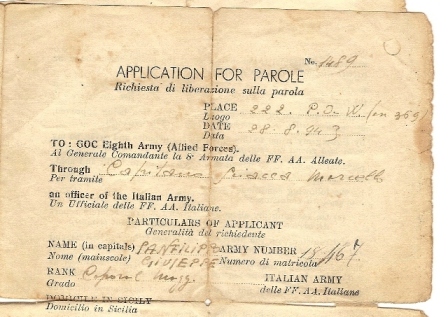 No. 1489
APPLICATION FOR PAROLE
Richiesta di liberazione sulla parola
PLACE 222. P.O.W.
Luogo
DATE 28.8.943
Data
TO : GOC Eighth Army (Allied Forces).
Al Generale Comandante la 8ª Armata delle FF. AA. Alleate.
Through Capitano Marcello
Per tramite
an officer of the Italian Army.
Un Ufficiale delle FF. AA. Italiane.
PARTICULARS OF APPLICANT
Generalità del richiedente
NAME (in capitals) ARMY NUMBER
Nome (maiuscole) GIUSEPPE Numero di matricola
RANK ITALIAN ARMY
Grado delle FF. AA. Italiane
DOMICILE IN SICILY
Domicilio in Sicilia